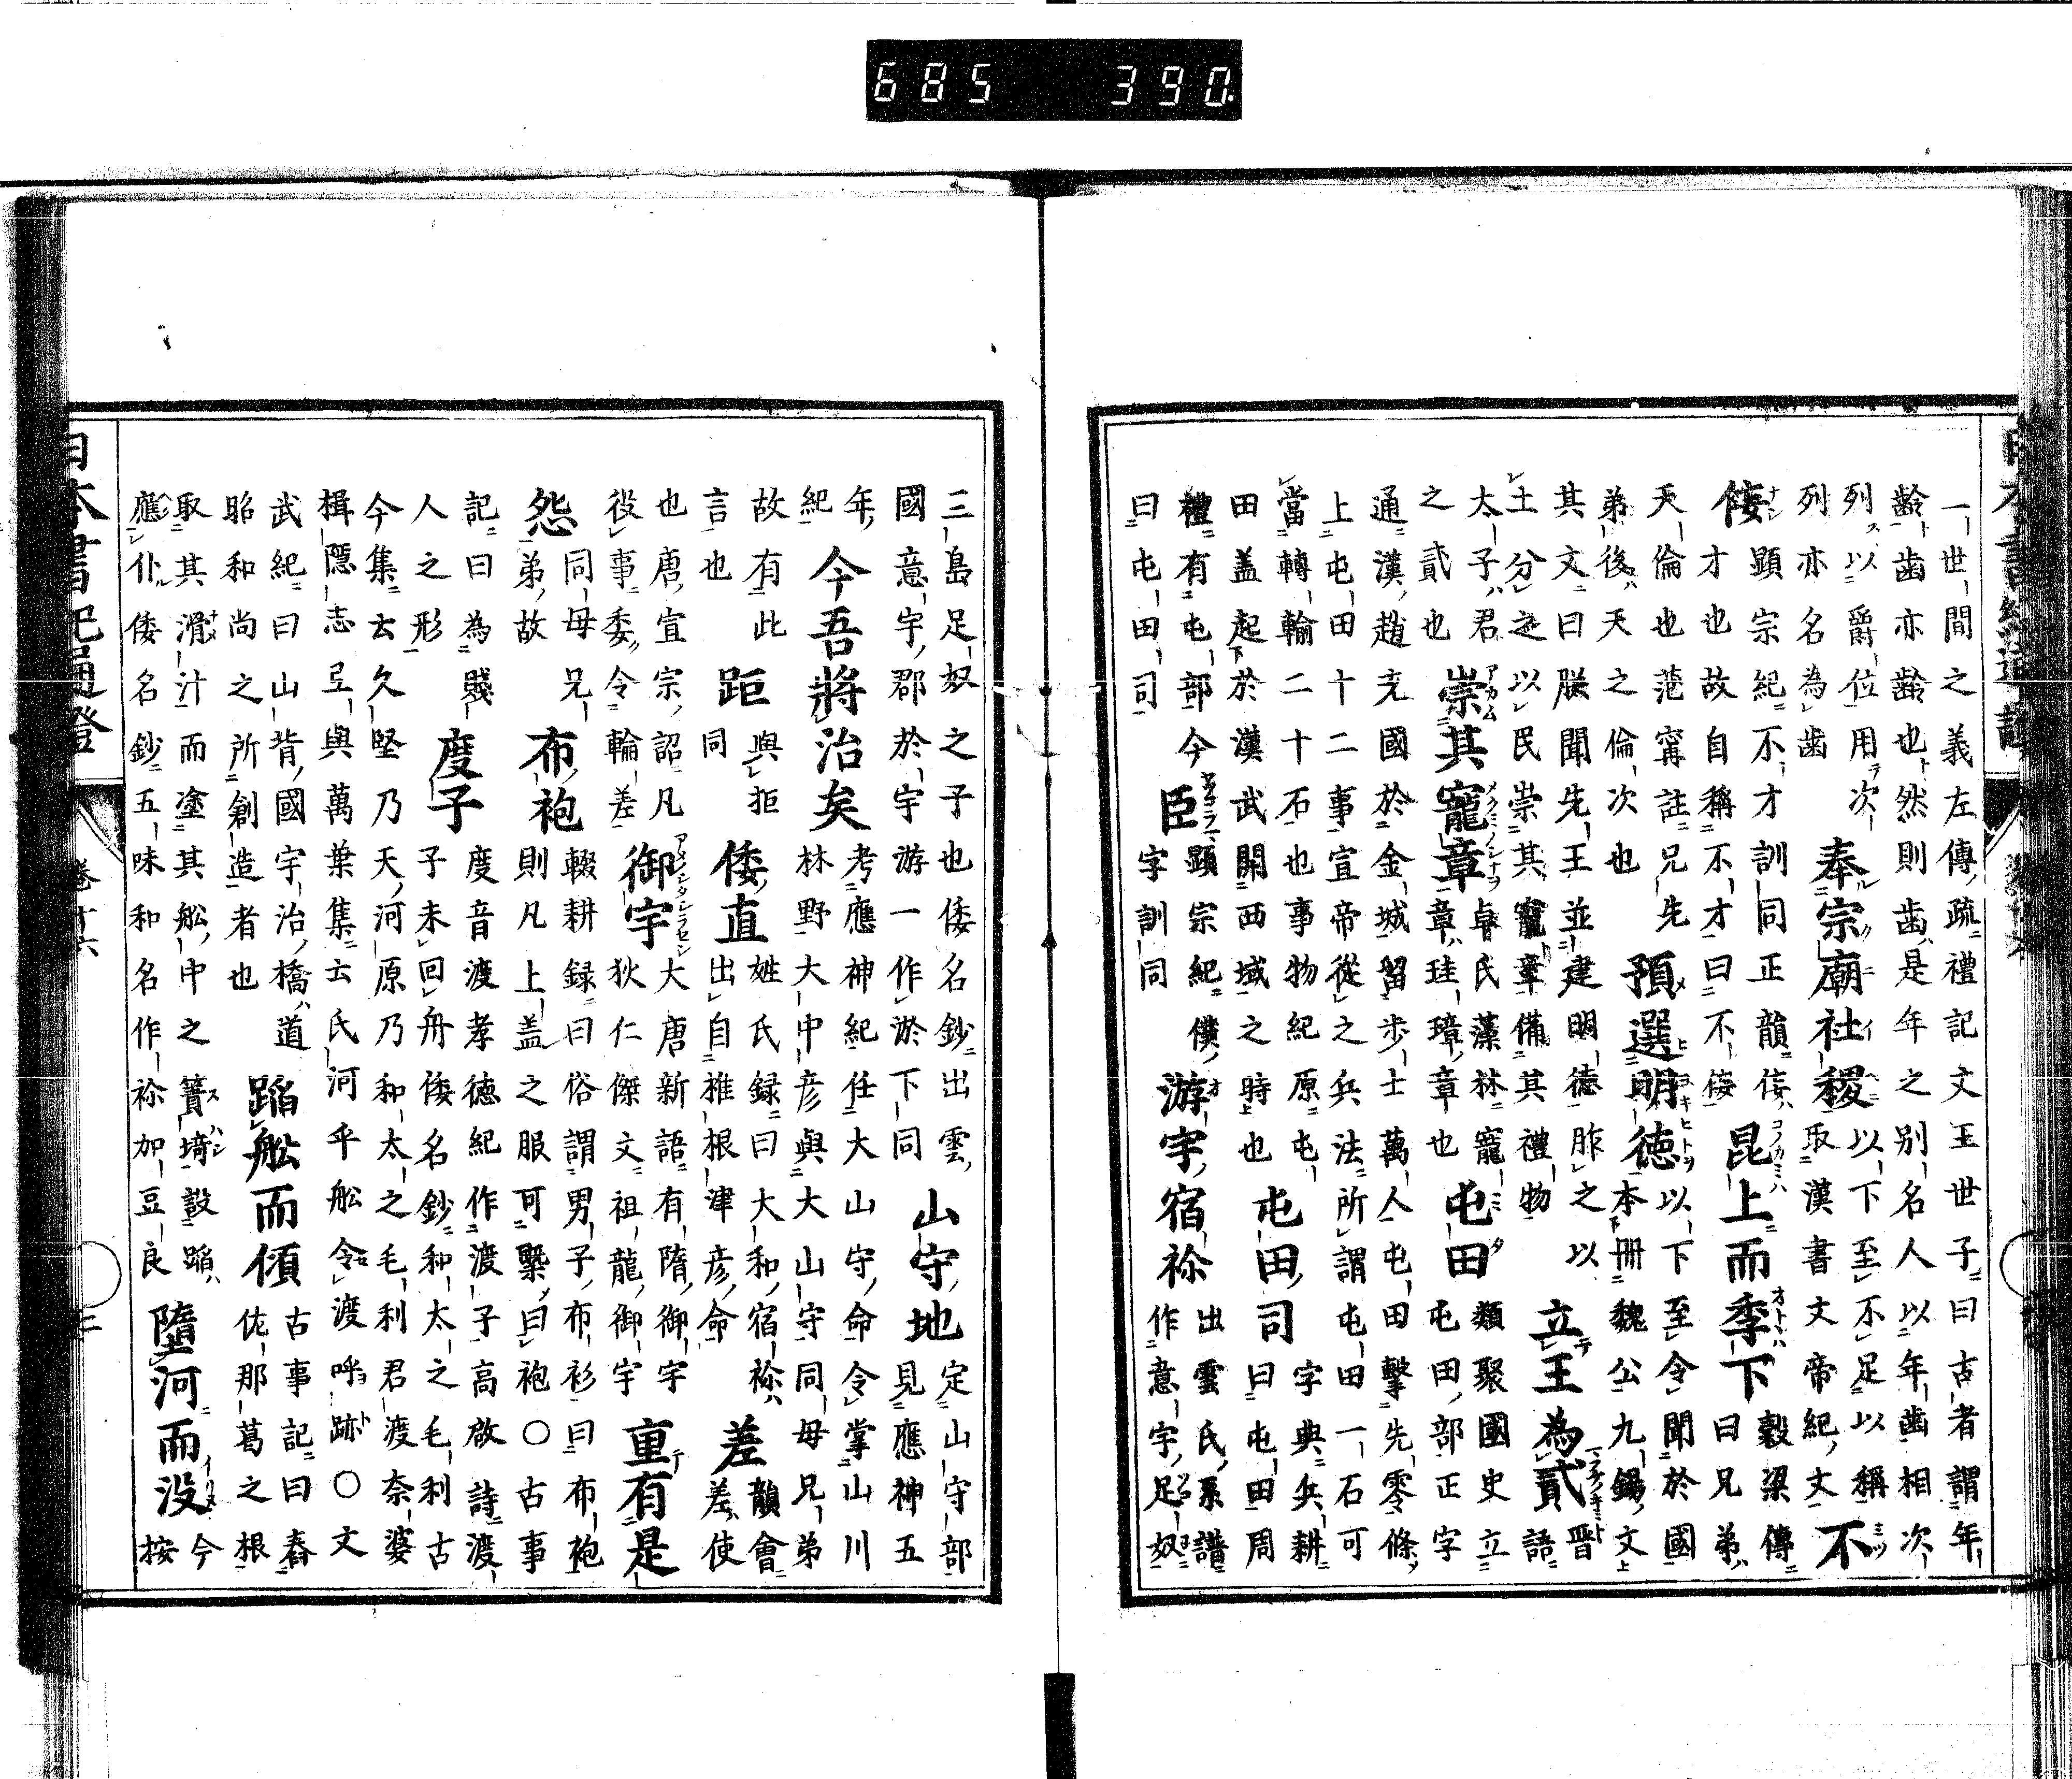 685 390
一世間之義左傳疏禮記文王世子曰古者謂年
齡齒亦齡也然則齒是年之別名人以年齒相次
列以爵位用次 奉宗廟社稷以下至不足以稱 不
列亦名為齒 取漢書文帝紀文
佞 顯宗紀不才訓同正韻佞 昆上而季下 穀梁傳
才也故自稱不才曰不佞 曰兄弟
天倫也范甯註兄先 預選明德 以下至令聞於國
弟後天之倫次也 本冊魏公九錫文
其文曰朕聞先王並建明德胙之以 立王為貳 晋語
土分之以民崇其寵章備其禮物
太子君 崇其寵章 卓氏藻林寵 屯田 類聚國史立
之貳也 章珪璋章也 屯田部正字
通漢趙充國於金城留步士萬人屯田擊先零條
上屯田十二事宣帝從之兵法所謂屯田一石可
當轉輸二十石也事物紀原屯 屯田司 字典兵耕
田盖起於漢武開西域之時也 曰屯田周
禮有屯部今 臣 顯宗紀僕 游宇宿祢 出雲氏系譜
曰屯田司 字訓同 作意宇足奴
三島足奴之子也倭名鈔出雲 山守地 定山守部
國意宇郡於宇游一作淤下同 見應神五
年 今吾將治矣 考應神紀任大山守命令掌山川
紀 林野大中彦與大山守同母兄弟
故有此 距 與拒 倭直 姓氏録曰大和宿祢 差 韻會
言也 同 出自椎根津彦命 差使
也唐宣宗詔凡 御宇 大唐新語有隋御宇 重有是
役事委令輪差 狄仁傑文祖龍御宇
怨 同母兄 布袍 輟耕録曰俗謂男子布衫曰布袍
弟故 則凡上盖之服可槩曰袍○古事
記曰為賤 度子 度音渡孝德紀作渡子高啟詩渡
人之形 子未回舟倭名鈔和太之毛利古
今集云久堅乃天河原乃和太之毛利君渡奈婆
楫隱志弖與萬葉集云氏河乎舩令渡呼跡○文
武紀曰山背國宇治橋道 蹈舩而傾 古事記曰舂
昭和尚之所創造者也 佐那葛之根
取其滑汁而塗其舩中之簀埼設蹈 墮河而没 今
應仆倭名鈔五味和名作祢加豆良 按
日本書紀通證 卷十六